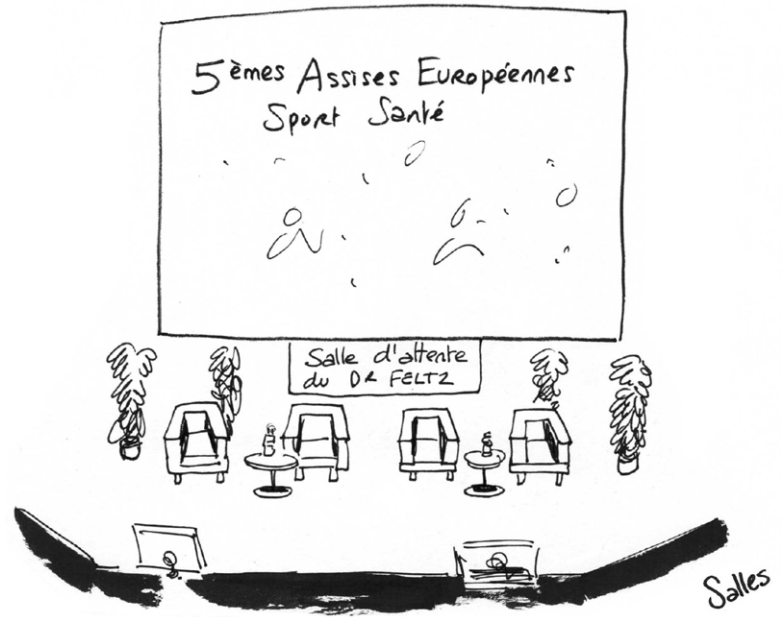 5èmes Assises Européennes
Sport Santé
Salle d'attente
du DR FELTZ
Salles